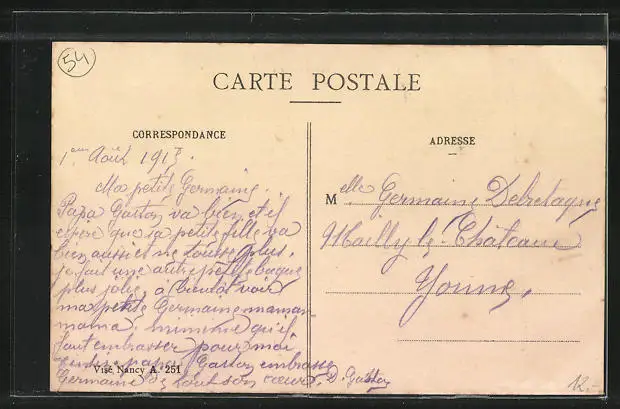 54
CARTE POSTALE
CORRESPONDANCE
ADRESSE
Août 191
Ma petite Germaine.
Papa Gaston va bien, et il
espère que sa petite fille va
bien aussi et ne tousse plus.
je fait une autre petite bague
plus jolie, a bientôt voir
ma petite Germaine maman
mama. qu'il
faut embrasser pour moi
papa Gaston embrasse
Germaine de tout son cœur. D. Gaston
Visé Nancy A. 251
Melle Germaine
Mailly-le-Château
Yonne.
12.-